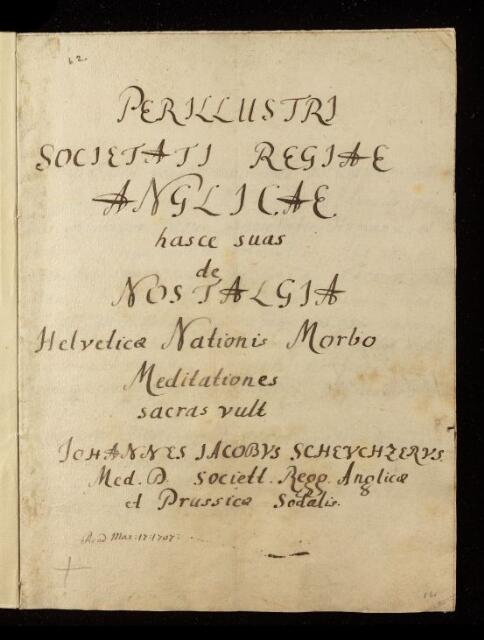 62.
PERILLUSTRI
SOCIETATI REGIAE
ANGLICAE
hasce suas
de
NOSTALGIA
Helveticæ Nationis Morbo
Meditationes
sacras vult
IOHANNES IACOBVS SCHEVCHZERVS.
Med. D. Societt. Regg. Anglicæ
et Prussicæ Sodalis.
Read Mar: 17: 1707: